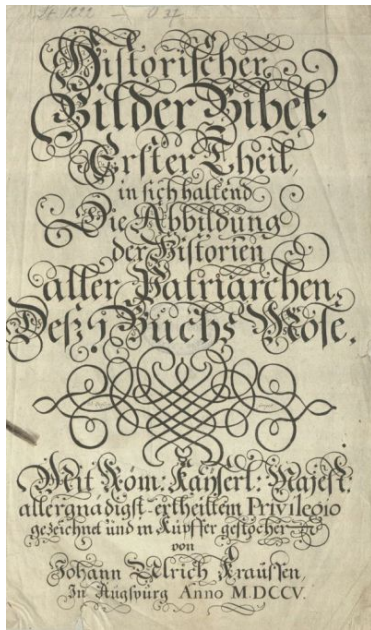 Historischer
Bilder Bibel,
Erster Theil,
in sich haltend
Die Abbildung
der Historien
aller Patriarchen,
Deß 1 Buchs Mose.
Mit Röm: Kayserl: Majest:
allergnädigst-ertheiltem Privilegio
gezeichnet und in Kupffer gestochen
von
Johann Ulrich Kraussen,
In Augspurg Anno M.DCCV.